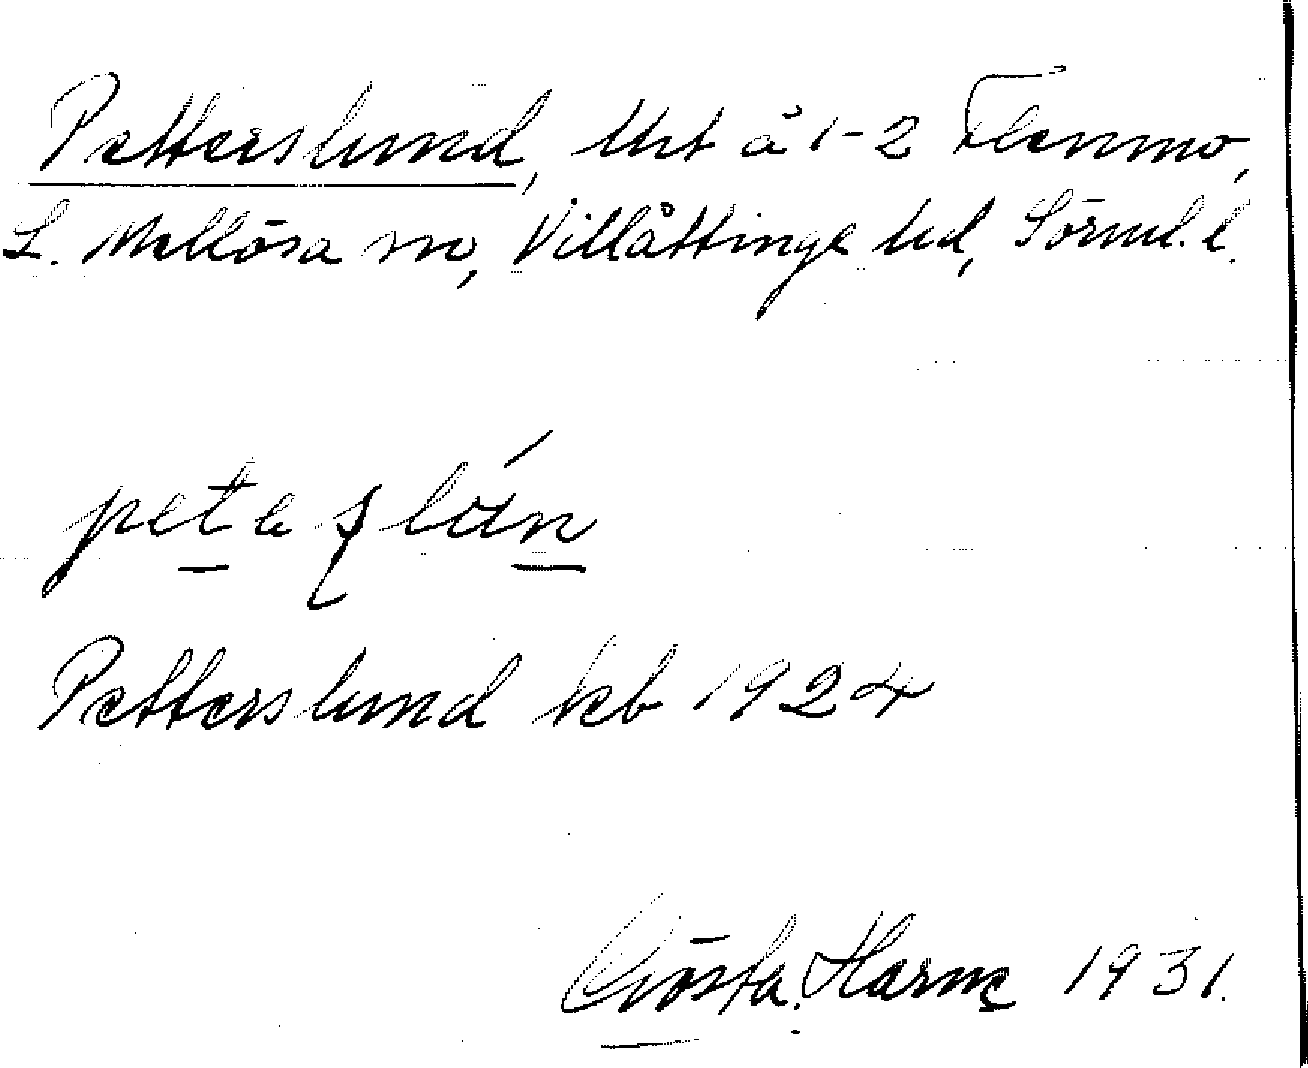 Petterslund, tht å 1-2 Flenmo,
L. Mellösa sn, Villåttinge hd, Sörml. l.
petaslún
Petterslund keb 1924
Gösta Harne 1931.